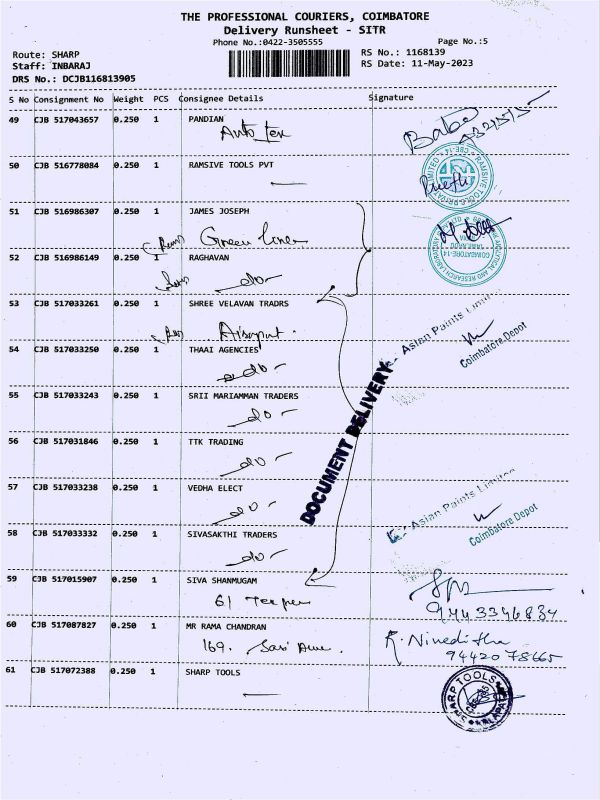 THE PROFESSIONAL COURIERS, COIMBATORE
Delivery Runsheet - SITR
Phone No.:0422-3505555 Page No.:5
Route: SHARP RS No.: 1168139
Staff: INBARAJ RS Date: 11-May-2023
DRS No.: DCJB116813905
S No Consignment No Weight PCS Consignee Details Signature
49 CJB 517043657 0.250 1 PANDIAN
Auto Tex
Babu
50 CJB 516778084 0.250 1 RAMSIVE TOOLS PVT
RAMSIVE TOOLS PRIVATE LIMITED CBE-14
Preethi
51 CJB 516986307 0.250 1 JAMES JOSEPH
Green Liner
52 CJB 516986149 0.250 1 RAGHAVAN
do
ANALYTICAL AND RESEARCH LABORATORY
COIMBATORE-14
53 CJB 517033261 0.250 1 SHREE VELAVAN TRADRS
Asian Paints Limited
Coimbatore Depot
54 CJB 517033250 0.250 1 THAAI AGENCIES
do
55 CJB 517033243 0.250 1 SRII MARIAMMAN TRADERS
do
DOCUMENT DELIVERY
56 CJB 517031846 0.250 1 TTK TRADING
do
57 CJB 517033238 0.250 1 VEDHA ELECT
do
Asian Paints Limited
Coimbatore Depot
58 CJB 517033332 0.250 1 SIVASAKTHI TRADERS
do
59 CJB 517015907 0.250 1 SIVA SHANMUGAM
61
9443346834
60 CJB 517087827 0.250 1 MR RAMA CHANDRAN
169. Sasi
R. Niveditha
9442078665
61 CJB 517072388 0.250 1 SHARP TOOLS
SHARP TOOLS